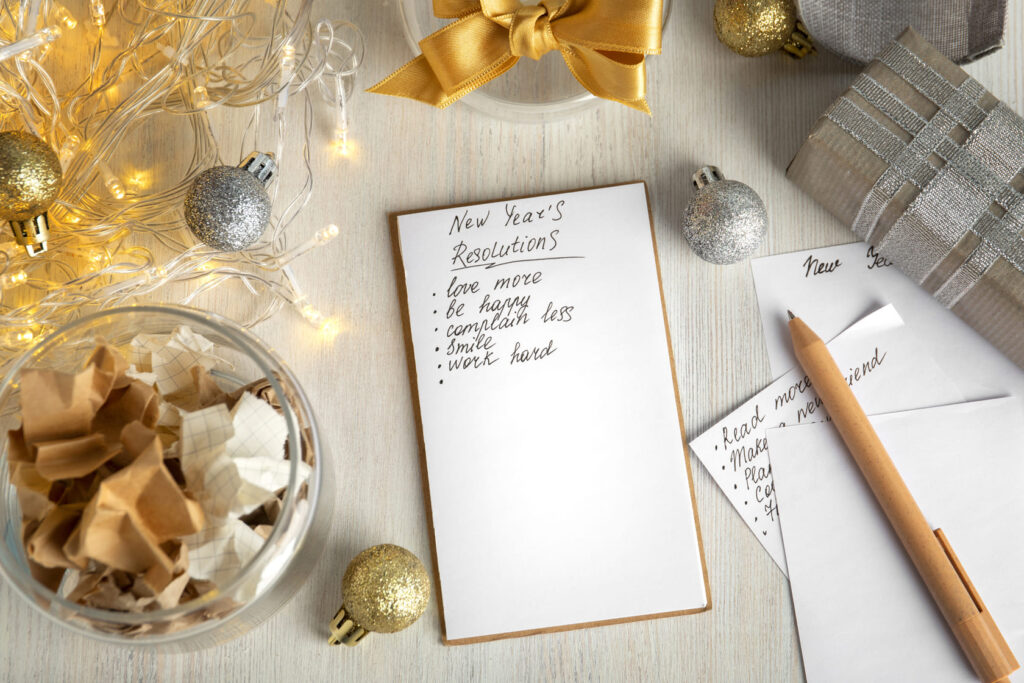 New Year's
Resolutions
• love more
• be happy
• complain less
• smile
• work hard
•
New
• Read more
• Make a new friend